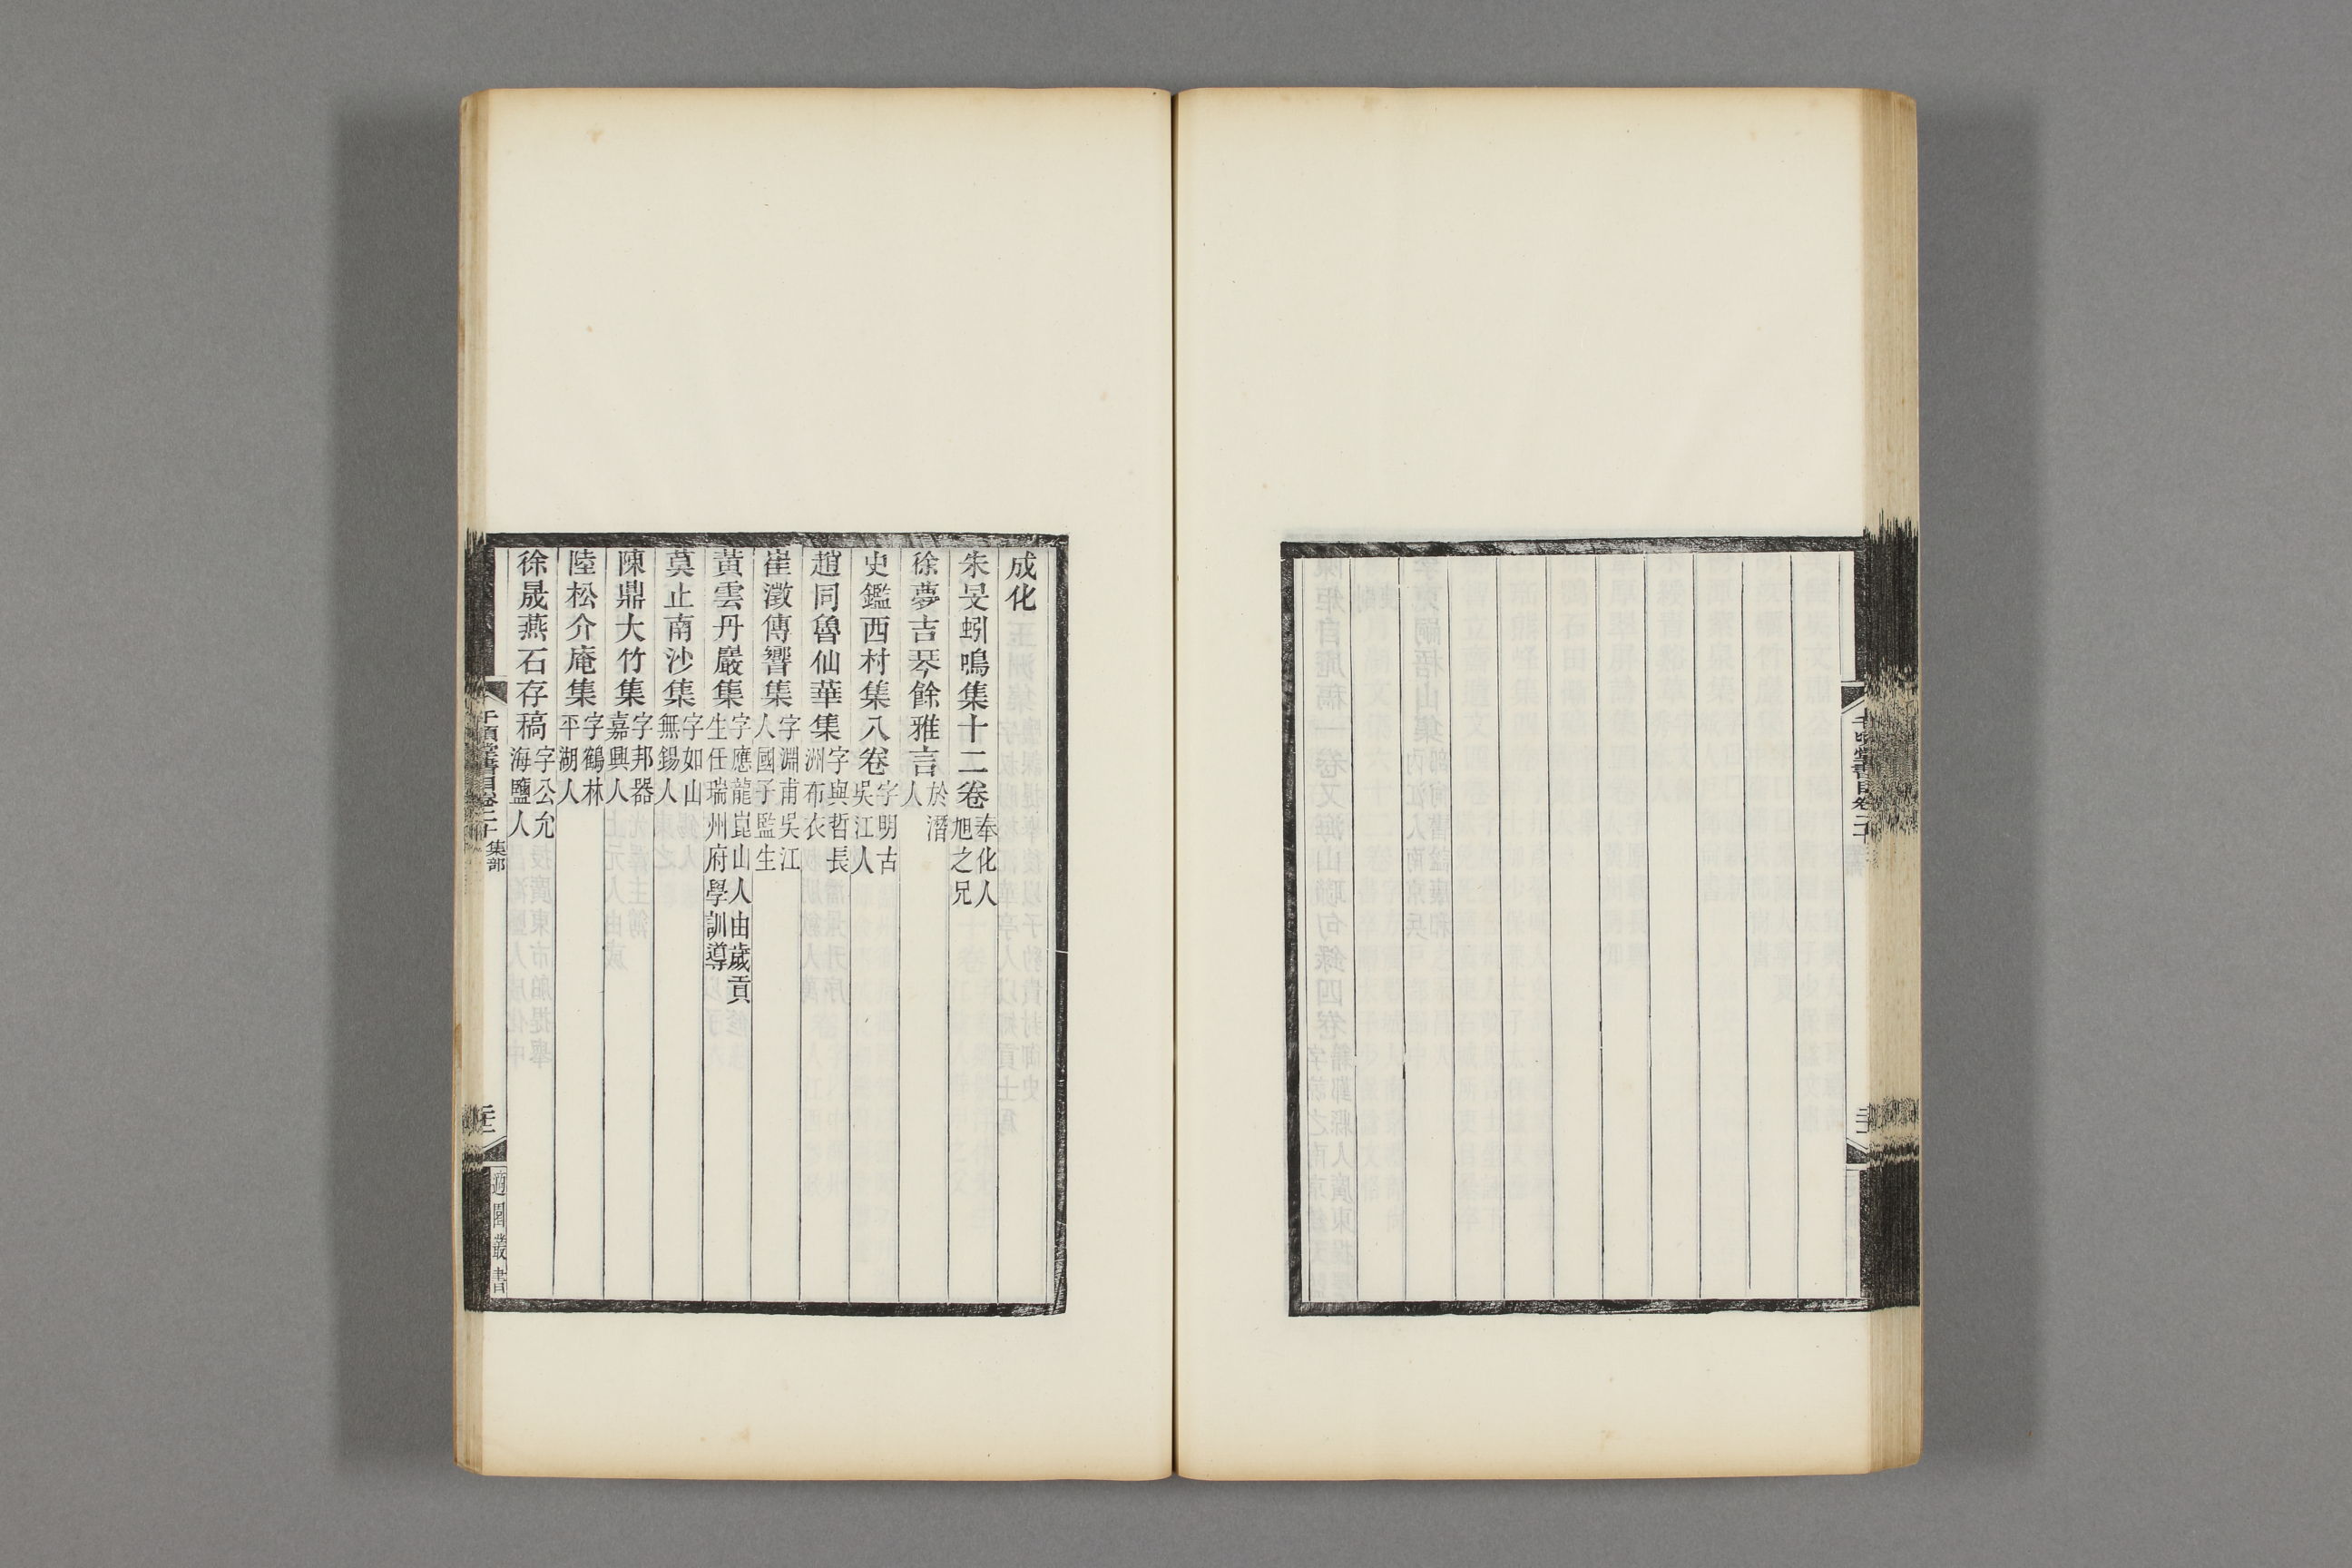 成化
朱旻蚓鳴集十二卷奉化人旭之兄
徐夢吉琴餘雅言於潛人
史鑑西村集八卷字明古吳江人
趙同魯仙華集字與哲長洲布衣
崔澂傳響集字淵甫吳江人國子監生
黃雲丹巖集字應龍崑山人由歲貢生任瑞州府學訓導
莫止南沙集字如山無錫人
陳鼎大竹集字邦器嘉興人
陸松介庵集字鶴林平湖人
徐晟燕石存稿字公允海鹽人
千頃堂書目卷二十 集部
適園叢書